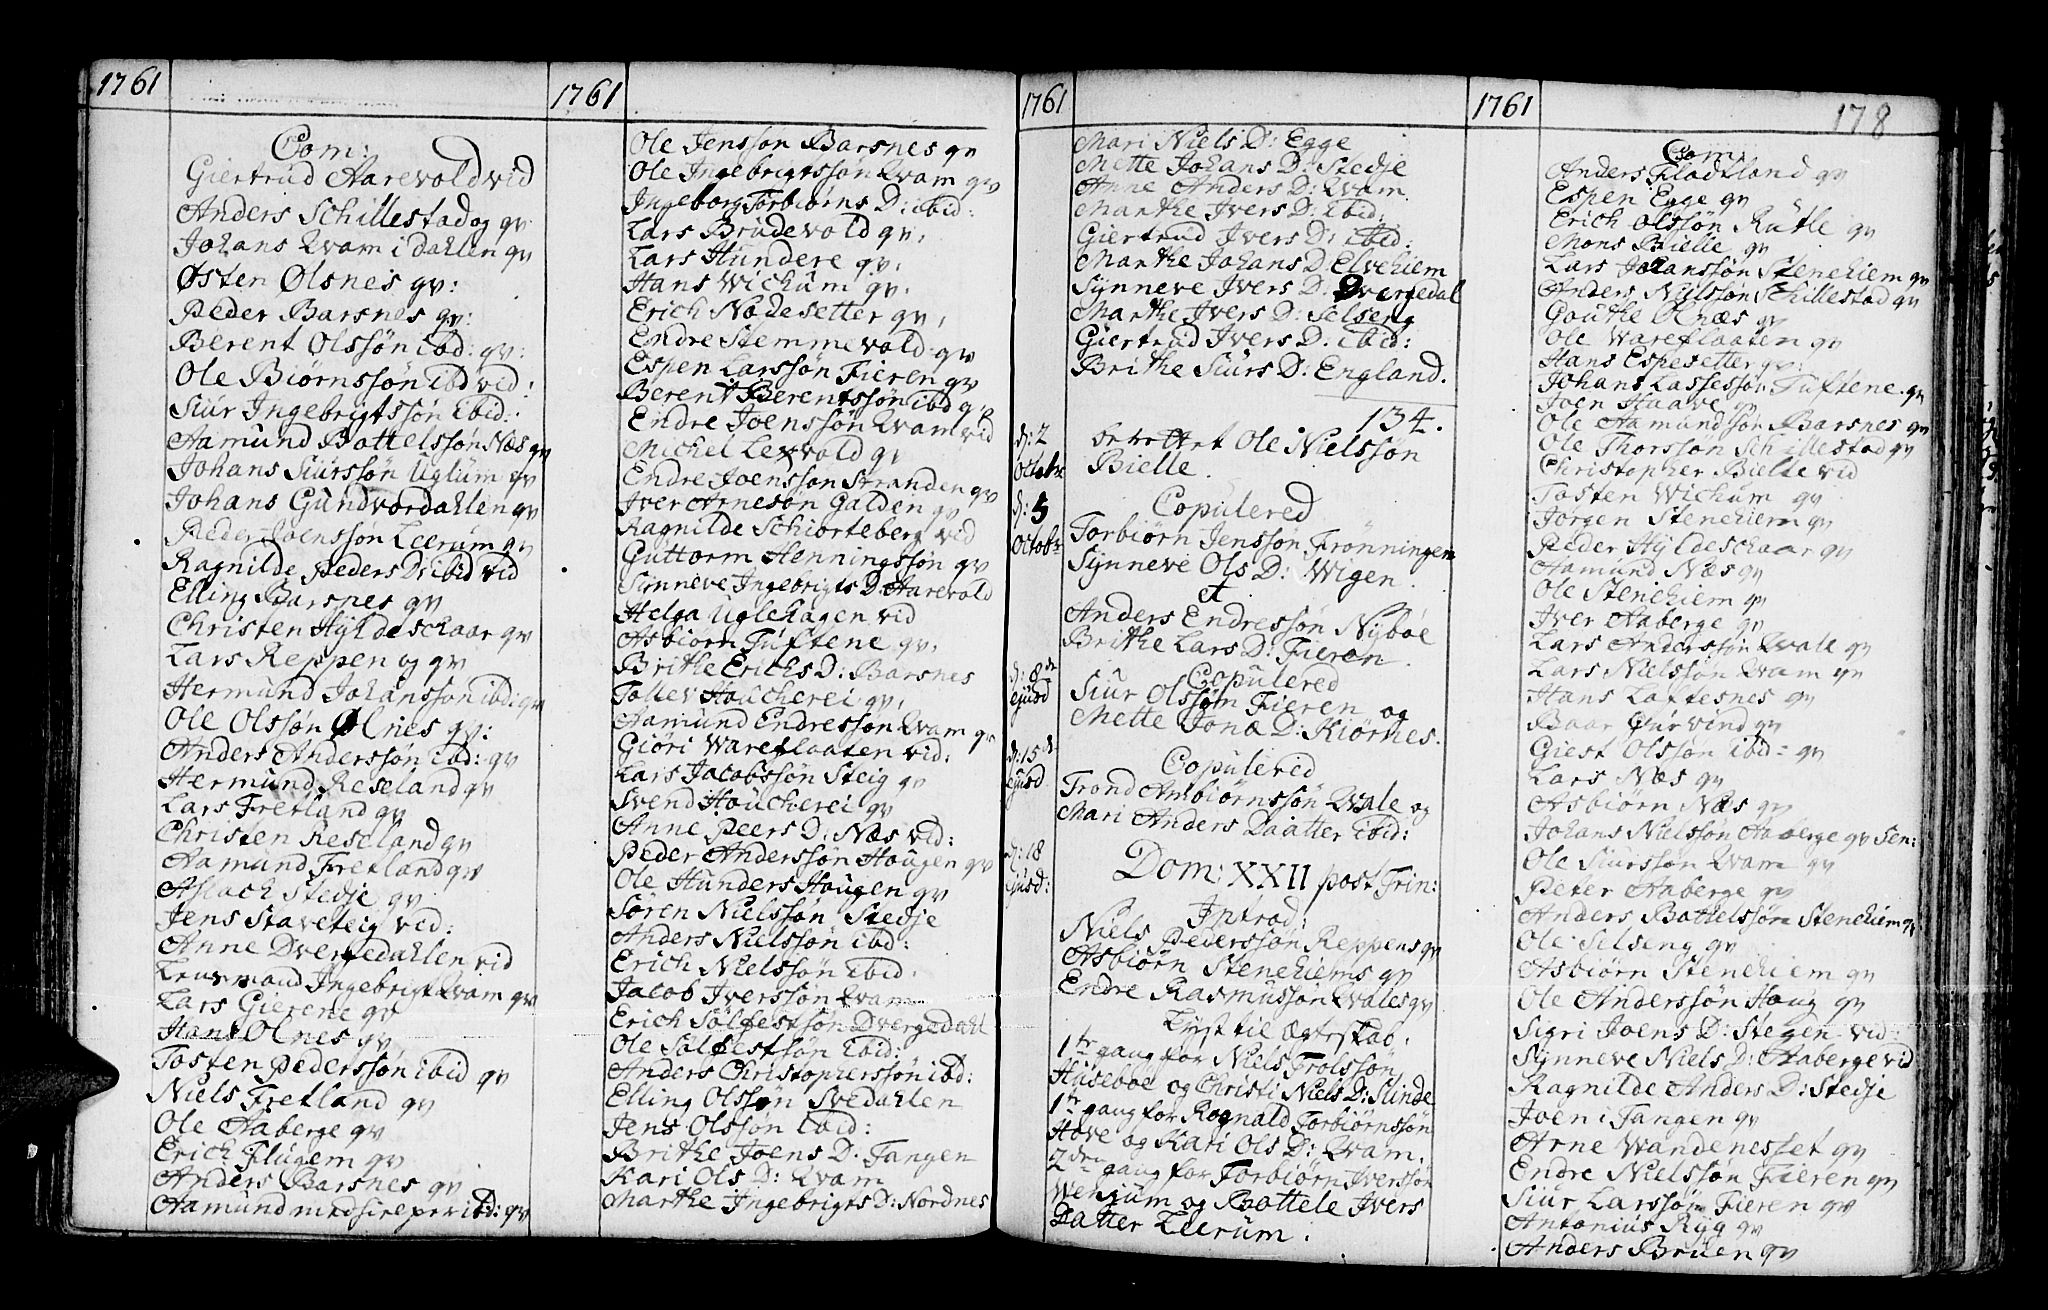 1761
Com:
Giertrud Aarevold vid
Anders Schillestad og qv
Johans Qvam i Dahlen qv
Østen Ølsnes qv:
Peder Barsnes qv:
Berent Olssøn ibd: qv:
Ole Biørnssøn ibd vid:
Siur Ingebrigtssøn ibid:
Aamund Bottelssøn Næs qv
Johans Siurssøn Uglum qv
Johans Gundvordahlen qv
Peder Joenssøn Leerum qv
Ragnilde Peders D: ibid vid
Elling Barsnes qv
Christen Hyldeschaar qv
Lars Reppen og qv
Hermund Johanssøn ibd: qv
Ole Olssøn Ølnes qv:
Anders Anderssøn ibd: qv
Hermund Reseland qv
Lars Fretland qv
Christen Reseland qv
Aamund Fretland qv
Aslach Stedje qv
Jens Staveteig vid:
Anne Dvergedahlen vid
Ingebrigt Qvam qv
Lars Gierene qv
Hans Olnes qv
Tosten Pederssøn ibid qv
Niels Fretland qv
Ole Aaberge qv
Erich Flugem qv
Anders Barsnes qv
Aamund ibd: qv
1761
Ole Jenssøn Barsnes qv
Ole Ingebrigtssøn Qvam qv
Ingeborg Torbiørns D: ibid:
Lars Brudevold qv,
Lars Hundere qv,
Hans Wichum qv,
Erich Nødesetter qv,
Endre Stemmevold qv
Espen Larssøn Fieren qv
Berent Berentssøn ibd q,
Endre Joenssøn Qvam vid
Michel Lexvold q,
Endre Joenssøn Stranden qv
Iver Arnesøn Galden qv
Ragnilde Schiorteberg vid
Guttorm Henningssøn qv
Sinneve Ingebrigts D Aarevold
Helga Uglehagen vid
Asbiørn Tuftene qv,
Brithe Erichs D: Barsnes
Tollev Houcherei qv,
Aamund Endressøn Qvam qv
Giøri Wareflaaten vid:
Lars Jacobssøn Steig qv
Svend Houcherei qv
Anne Peers D: Næs vid:
Peder Anderssøn Hougen qv
Ole Hunders Hougen qv
Søren Nielssøn Stedje
Anders Nielssøn ibd:
Erich Nielssøn ibid:
Jacob Iverssøn Qvam
Erich Sølfestsøn Dvergedahl
Ole Sølfestsøn ibid:
Anders Christopherssøn ibd:
Elling Olssøn Svedahlen
Jens Olssøn ibid:
Brithe Joens D. Tangen
Kari Ols D: Qvam
Marthe Ingebrigts D: Nordnes
1761
Mari Niels D: Egge
Mette Johans D: Stedje
Anne Anders D: Qvam
Marthe Ivers D: ibid:
Giertrud Ivers D: ibid:
Marthe Johans D: Elvehiem
Synneve Ivers D: Dvergedal
Marthe Ivers D: Selseng
Giertrud Ivers D: ibid:
Brithe Siurs D: England.
134.
d: 2 Octobr
berettet Ole Nielssøn
Bielle.
d: 5 Octobr
Copulered
Torbiørn Jenssøn Frønningen
Synneve Ols D: Wigen.
et
Anders Endressøn Nybøe
Brithe Lars D: Fieren.
d: 8de ejusd
Copulered
Siur Olssøn Fieren og
Mette Jonæ D: Kiørnes.
d: 15de ejusd
Copulered
Trond Ambiørnssøn Qvale og
Mari Anders Daatter ibid:
d: 18 ejusd:
Dom: XXII post Trin:
Introd:
Niels Pederssøn Reppens qv
Asbiørn Stenehiems qv
Endre Rasmussøn Qvales qv
Lyst til Ægteskab.
1te gang for Niels Trolssøn
Husebøe og Christi Niels D: Slinde
1te gang for Rognald Torbiørnssøn
Hove og Kari Ols D: Qvam.
2den gang for Torbiørn Iverssøn
Wenjum og Bottele Ivers
Datter Leerum.
1761
178
Com:
Anders Fladtland qv
Espen Egge qv
Erich Olssøn Rutle qv
Mons Bielle qv
Lars Johanssøn Stenehiem qv
Anders Nielssøn Schillestad qv
Gouthe Olnæs qv
Ole Wareflaaten qv
Hans Espesetter qv:
Johans Lassessøn Tuftene qv
Joen Haave qv
Ole Aamundsøn Barsnes qv
Ole Thorssøn Schillestad qv
Christopher Bielle vid
Tosten Wichum qv
Jørgen Stenehiem qv
Peder Hyldeschaar qv
Aamund Næs qv
Ole Stenehiem qv
Iver Aaberge qv
Lars Anderssøn Qvale qv
Lars Nielssøn Qvam qv
Hans Loftesnes qv
Baar Gurvind qv
Giest Olssøn ibd: qv
Lars Næs qv
Asbiørn Næs qv
Johans Nielssøn Aaberge qv Sen:
Ole Siurssøn Qvam qv
Peter Aaberge qv
Anders Bottelssøn Stenehiem qv
Ole Selseng qv
Asbiørn Stenehiem qv
Ole Anderssøn Houg qv
Sigri Joens D: Stegen vid:
Synneve Niels D: Aaberge vid
Ragnilde Anders D: Stedje
Joen i Tangen qv
Arne Wandenesset qv
Endre Nielssøn Fieren qv
Siur Larssøn Fieren qv
Antonius Ryg qv
Anders Bruen qv